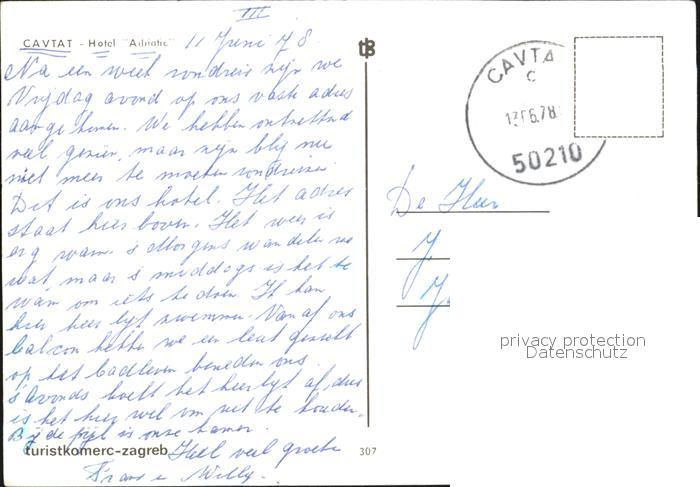 III
CAVTAT - Hotel "Adriatic" 11 Juni 78
Na een week rondreis zijn we
Vrijdag avond op ons vaste adres
aangekomen. We hebben ontzettend
veel gezien, maar zijn blij nu
niet meer te moeten rondreizen
Dit is ons hotel. Het adres
staat hier boven. Het weer is
erg warm. 's Morgens wandelen we
wat, maar 's middags is het te
warm om iets te doen. Ik kan
hier heerlijk zwemmen. Vanaf ons
balcon hebben we een leuk gezicht
op het badleven beneden ons.
's avonds koelt het heerlijk af, dus
is het hier wel om uit te houden.
Bij de pijl is onze kamer.
turistkomerc-zagreb Heel veel groeten
Frans en Willy.
307
tB
CAVTA
C
13.06.78
50210
De Heer
J
J
privacy protection
Datenschutz